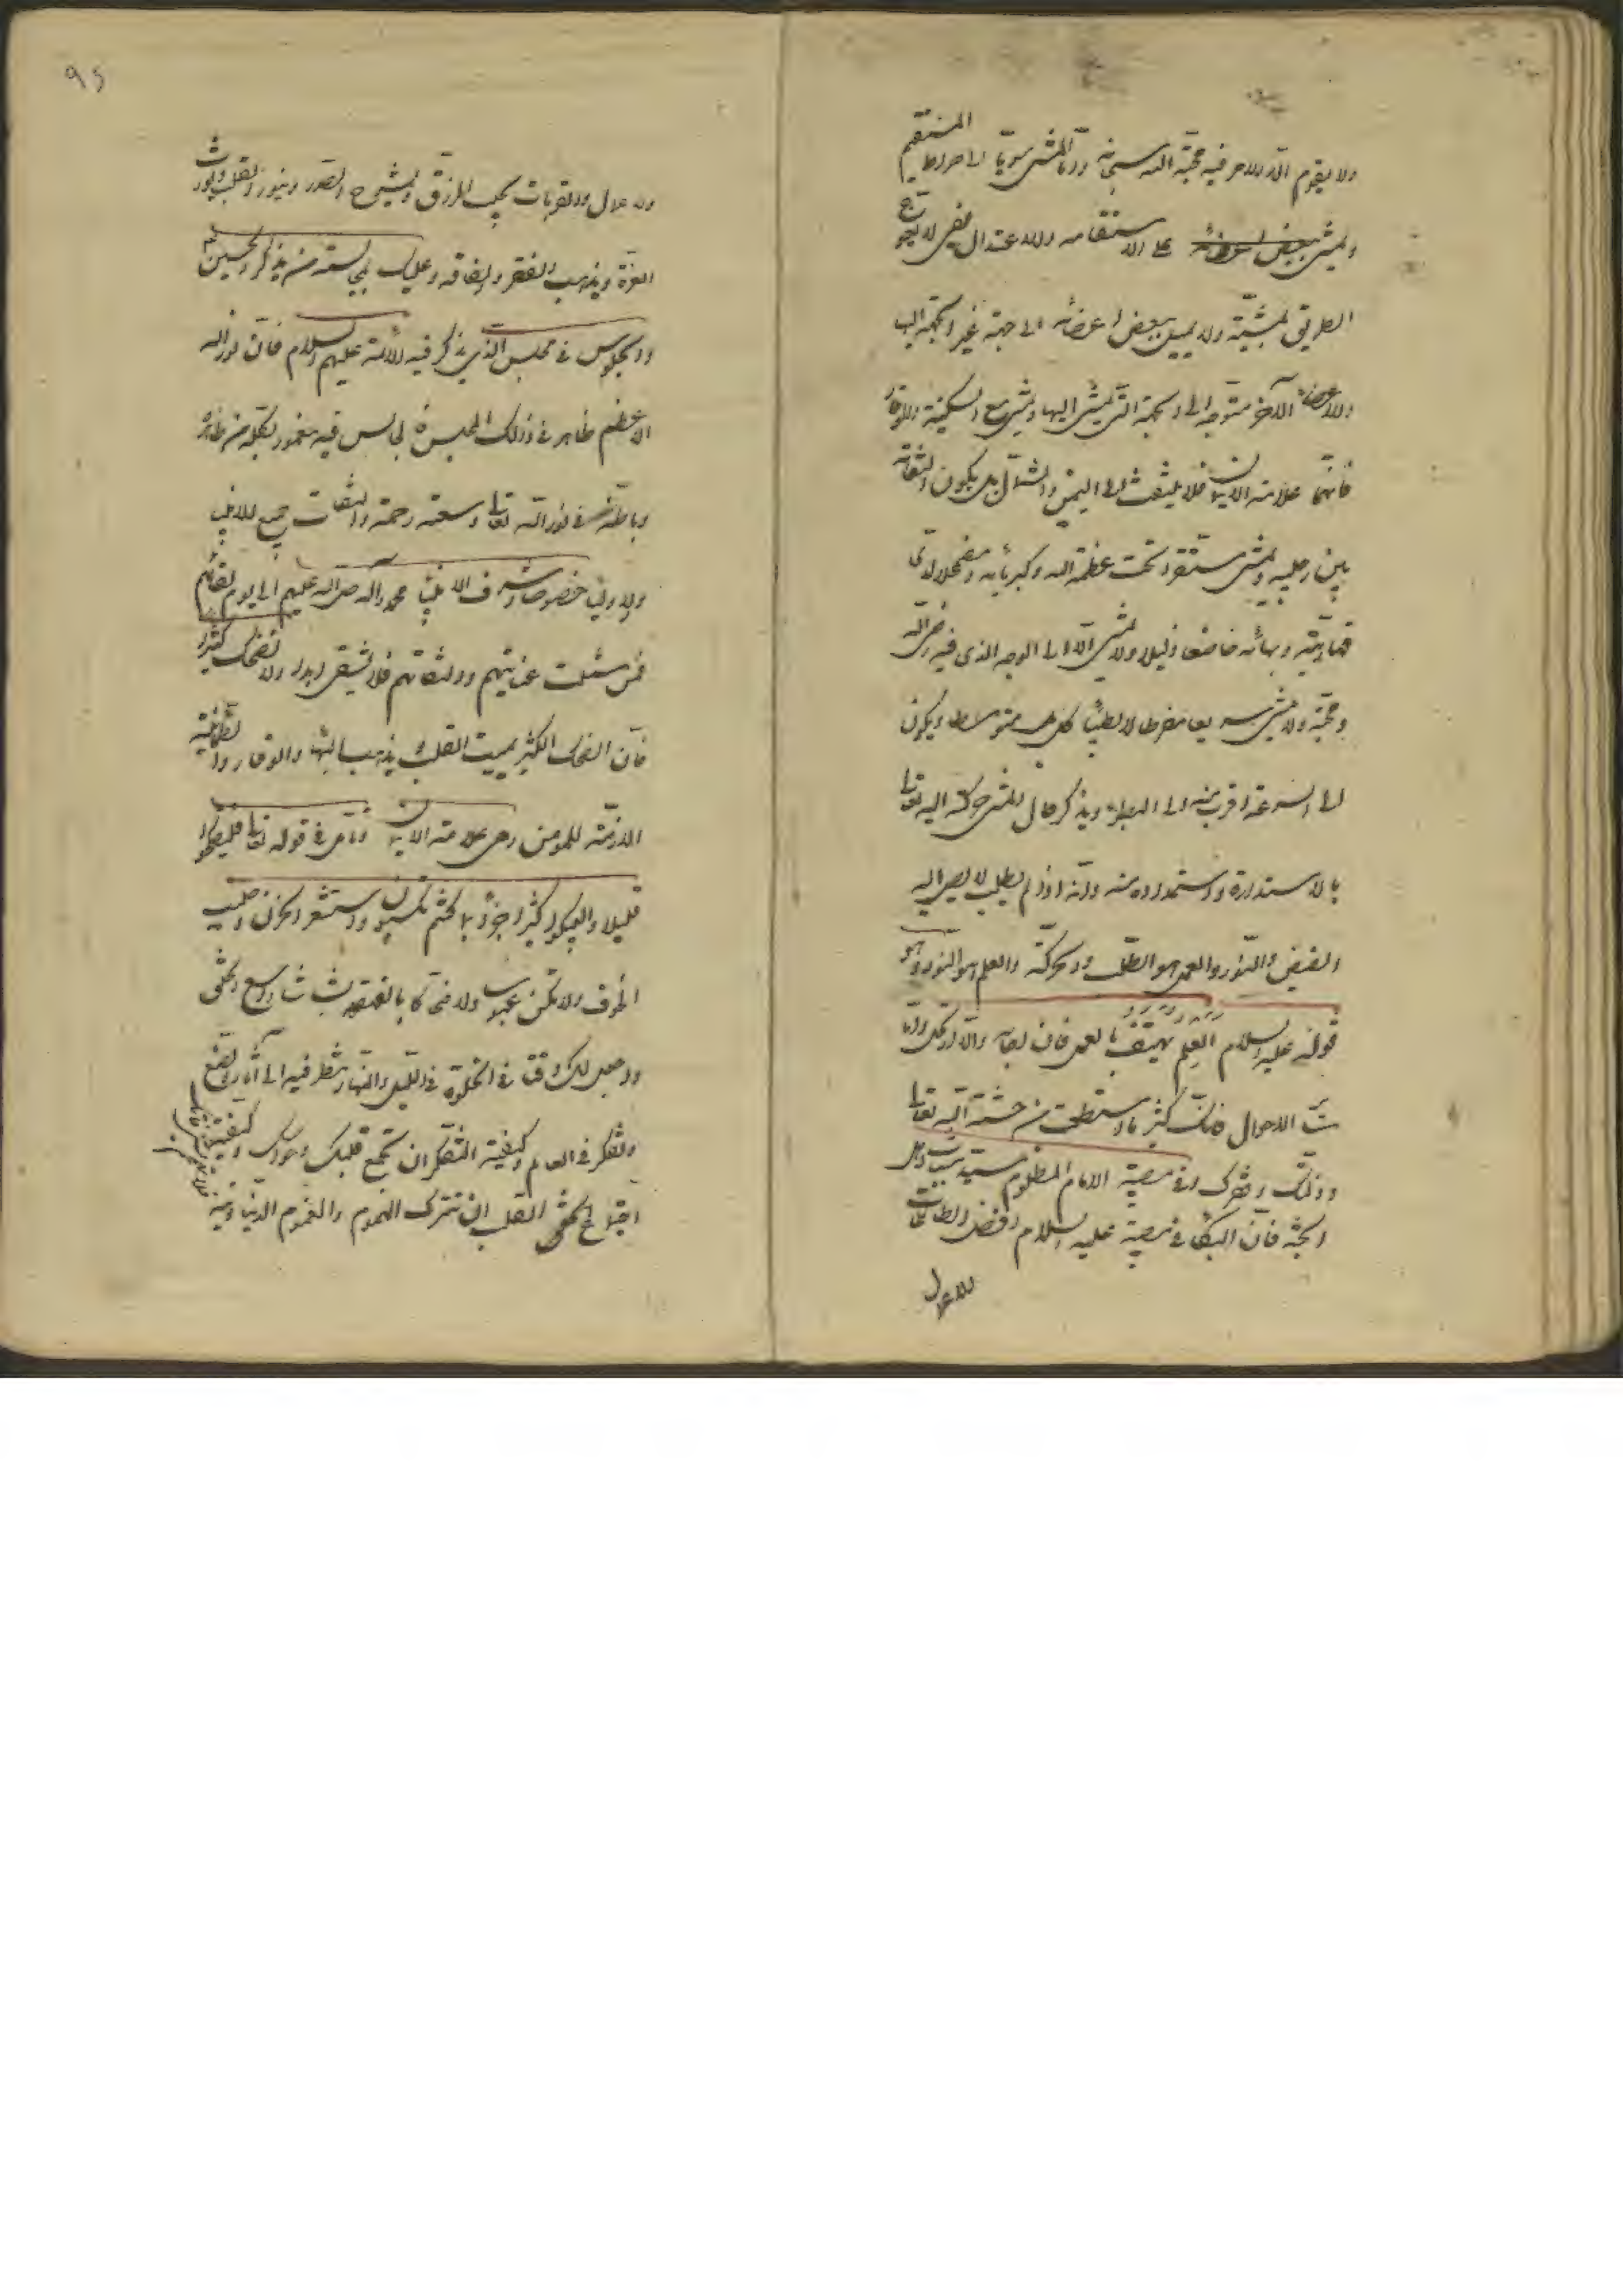 ولا يقوم الا لامر فيه محبة الله سبحانه واذا مشى سويا الى صراط المستقيم
ويمشى على الاستقامه والاعتدال يعنى لا يعوج
الطريق بمشيته ولا يميل ببعض اعضائه الى جهة غير الجهة
والاعضاء الآخر متوجه الى الجهة التى يمشى اليها ويمشى مع السكينة والوقار
فانهما علامة الايمان فلا يلتفت الى اليمين والشمال بل يكون التفاته
بين رجليه ويمشى مستقرا تحت عظمة الله وكبريائه ومضمحلا لدى
قهاريته وبهائه خاضعا ذليلا ولا يمشى الا الى الوجه الذى فيه رضى الله
ومحبته ولا يمشى سريعا مفرطا لا بطيئا كل هو متوسطا ويكون
الى السرعة اقرب منه الى البطؤ ويذكر حال المشى حركته اليه تعالى
بالاستدارة واستمداده منه وانه اذا لم يطلب لا يصل اليه
الفيض والنور والعمل هو الطلب والحركة والعلم هو النور وهو
قوله عليه السلام العلم يهتف بالعمل فان اجابه والا ارتحل
الاحوال كثر ما استطعت من خشية الله تعالى
وذلك فى مصيبة الامام المظلوم سيد شباب اهل
الجنة فان البكاء فى مصيبته عليه السلام افضل الطاعات
والاعمال
۹۵
والاعمال والقربات يجلب الرزق ويشرح الصدر وينور القلب ويورث
العزة ويذهب الفقر والفاقه وعليك بمجالسة من يذكر الحسين
والجلوس فى مجلس الذى يذكر فيه الائمة عليهم السلام فان نور الله
الاعظم ظاهر فى ذلك المجلس فالجالس فيه مغمور بكله من ظاهره
وباطنه فى نور الله تعالى وسعة رحمته والتفات جميع الانبياء
والاولياء خصوصا اشرف الانبياء محمد وآله صلى الله عليهم الى يوم القيام
فمن شملت عنايتهم والتفاتهم فلا يشقى ابدا ولا تضحك كثيرا
فان الضحك الكثير يميت القلب ويذهب البهاء والوقار والطمأنينة
اللازمة للمؤمن وهى علامة الايمان وتأمل فى قوله تعالى فليضحكوا
قليلا وليبكوا كثيرا جزاء بما كنتم تكسبون واستشعر الحزن
الخوف ولا تكن عبوسا ولا ضحاكا بالقهقهة بشاشا واسع الخلق
واجعل لك وقتا فى الخلوة فى الليل والنهار تنظر فيه الى آثار الصنع
وتفكر فى العالم وكيفية التفكر ان تجمع قلبك وحواسك وكيفية
اجتماع القلب ان تترك الهموم والغموم الدنياوية